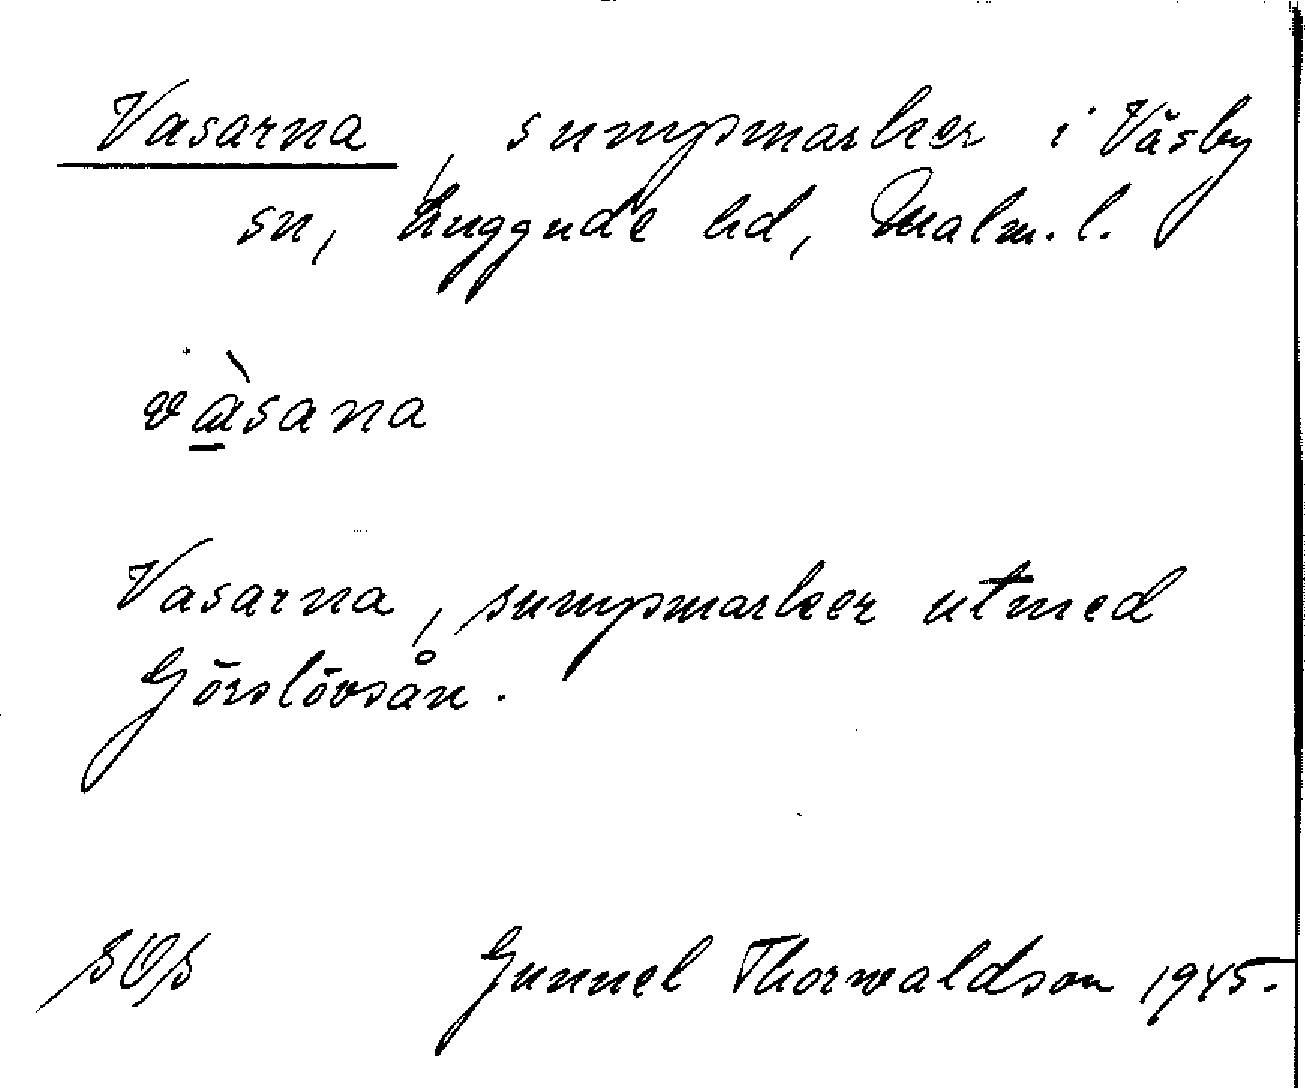 Vasarna, sumpmarker i Väsby
sn, Luggude hd, Malm. l.
v&#97;̱̀sana
Vasarna, sumpmarker utmed
Görslövsån.
SOS Gunnel Thorwaldson 1945.